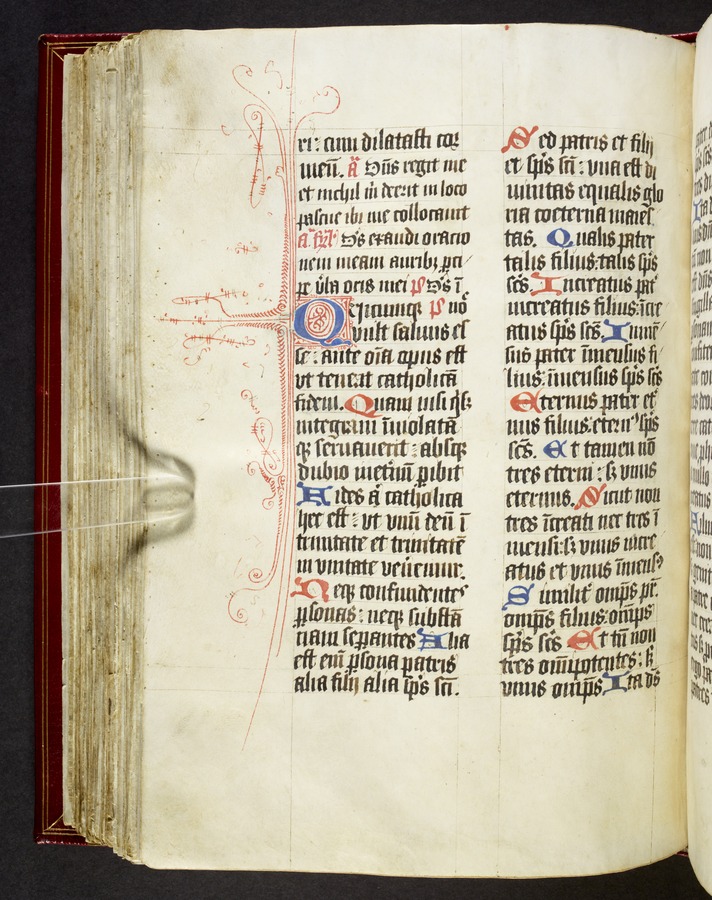 ri: cum dilatasti cor
meū. a Dn̄s regit me
et nichil m̄ deerit in loco
pascue ibi me collocauit
Ds exaudi oracio
nem meam auribꝫ ꝑci
pe v̄ba oris mei p̄ Ds ī
Qvicumqꝫ
vult saluus es
se: ante oīa opus est
vt teneat catholicā
fidem. Quam nisi qͥsqꝫ
integram īuiolatā
qꝫ seruauerit: absqꝫ
dubio in et̄nū ꝑibit
Fides aͬ catholica
hec est: vt vnū deū ī
trinitate et trinitatē
in vnitate ven̄emur.
Neqꝫ confundentes
ꝑsonas: neqꝫ substā
ciam seꝑantes Alia
est eni ꝑsona patris
alia filij alia sp̄s sc̄i.
Sed patris et filij
et sp̄s sc̄i: vna est di
uinitas equalis glo
ria coeterna maies
tas. Qualis pater
talis filius: talis sp̄s
sc̄s. Increatus pat̄
increatus filius: īcre
atus sp̄s sc̄s. Immē
sus pater īmensus fi
lius: īmensus sp̄s sc̄s
Eternus pater et̄
nus filius: etern⁹ sp̄s
sc̄s. Et tamen nō
tres eterni: sꝫ vnus
eternus. Sicut non
tres īcreati nec tres ī
mensi: sꝫ vnus incre
atus et vnus īmens⁹
Similit̄ omp̄s pr̄.
omp̄s filius: omp̄s
sp̄s sc̄s Et tn̄ non
tres omīpotentes: sꝫ
vnus omp̄s Ita ds